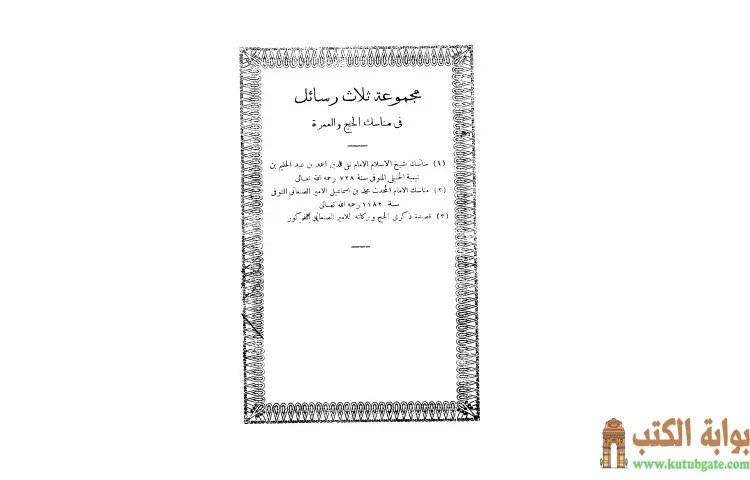 مجموعة ثلاث رسائل
فى مناسك الحج والعمرة
(١) مناسك شيخ الاسلام الامام تقى الدين احمد بن عبد الحليم بن
تيمية الحنبلى المتوفى سنة ٧٢٨ رحمه الله تعالى
(٢) مناسك الامام المحدث محمد بن اسماعيل الامير الصنعانى المتوفى
سنة ١١٨٢ رحمه الله تعالى
(٣) قصيدة ذكرى الحج وبركاته للامير الصنعانى المذكور
بوابة الكتب
www.kutubgate.com